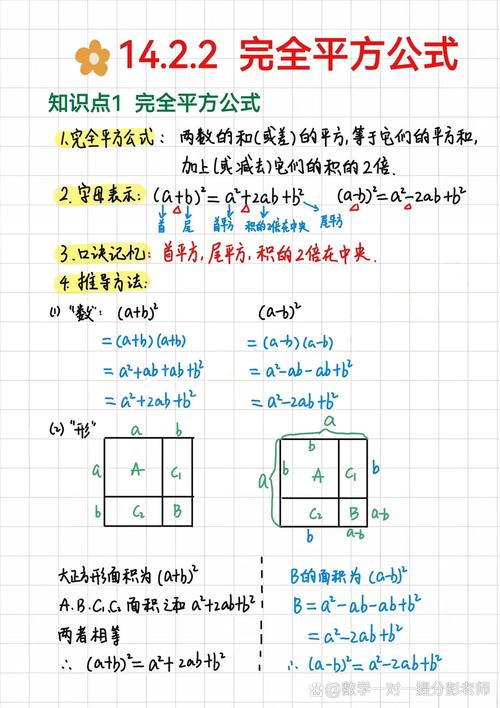 14.2.2 完全平方公式
知识点1 完全平方公式
1.完全平方公式：两数的和(或差)的平方,等于它们的平方和,
加上(或减去)它们的积的2倍.
2.字母表示：(a+b)²=a²+2ab+b² (a-b)²=a²-2ab+b²
首 尾 首平方 积的2倍在中央 尾平方
3.口诀记忆：首平方,尾平方,积的2倍在中央.
4.推导方法：
(1)"数"：(a+b)² (a-b)²
=(a+b)(a+b) =(a-b)(a-b)
=a²+ab+ab+b² =a²-ab-ab+b²
=a²+2ab+b² =a²-2ab+b²
(2)"形" a b a
b
a A C₁ a b A C₁ b
b C₂ B C₂ B a-b
b a-b
大正方形面积为(a+b)² B的面积为(a-b)²
A.B.C₁.C₂面积之和a²+2ab+b² B=a²-ab-ab+b²
两者相等 =a²-2ab+b²
∴(a+b)²=a²+2ab+b² ∴(a-b)²=a²-2ab+b²
@数学一对一提分彭老师